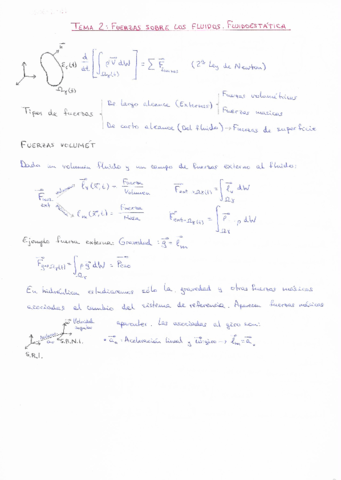 TEMA 2: FUERZAS SOBRE LOS FLUIDOS. FLUIDOESTÁTICA.
d/dt [∫Ωf(t) ρV⃗ dW] = ∑ F⃗ (2ª Ley de Newton)
Σf(t)
Ωf(t)
Tipos de fuerzas
De largo alcance (Externas)
Fuerzas volumétricas
Fuerzas másicas
De corto alcance (Del fluido) → Fuerzas de superficie
FUERZAS VOLUMÉT
Dado un volumen fluido y un campo de fuerzas externo al fluido:
Fuerza
Volumen
Fuerza
Masa
Ejemplo fuerza externa: Gravedad: g⃗ = f⃗m
= ∫Ωf ρg⃗ dW = P⃗eso
En hidráulica estudiaremos sólo la gravedad y otras fuerzas másicas
asociadas al cambio del sistema de referencia. Aparecen fuerzas másicas
aparentes. Las asociadas al giro son:
Velocidad angular
S.R.N.I.
• a⃗o - Aceleración lineal y
S.R.I.